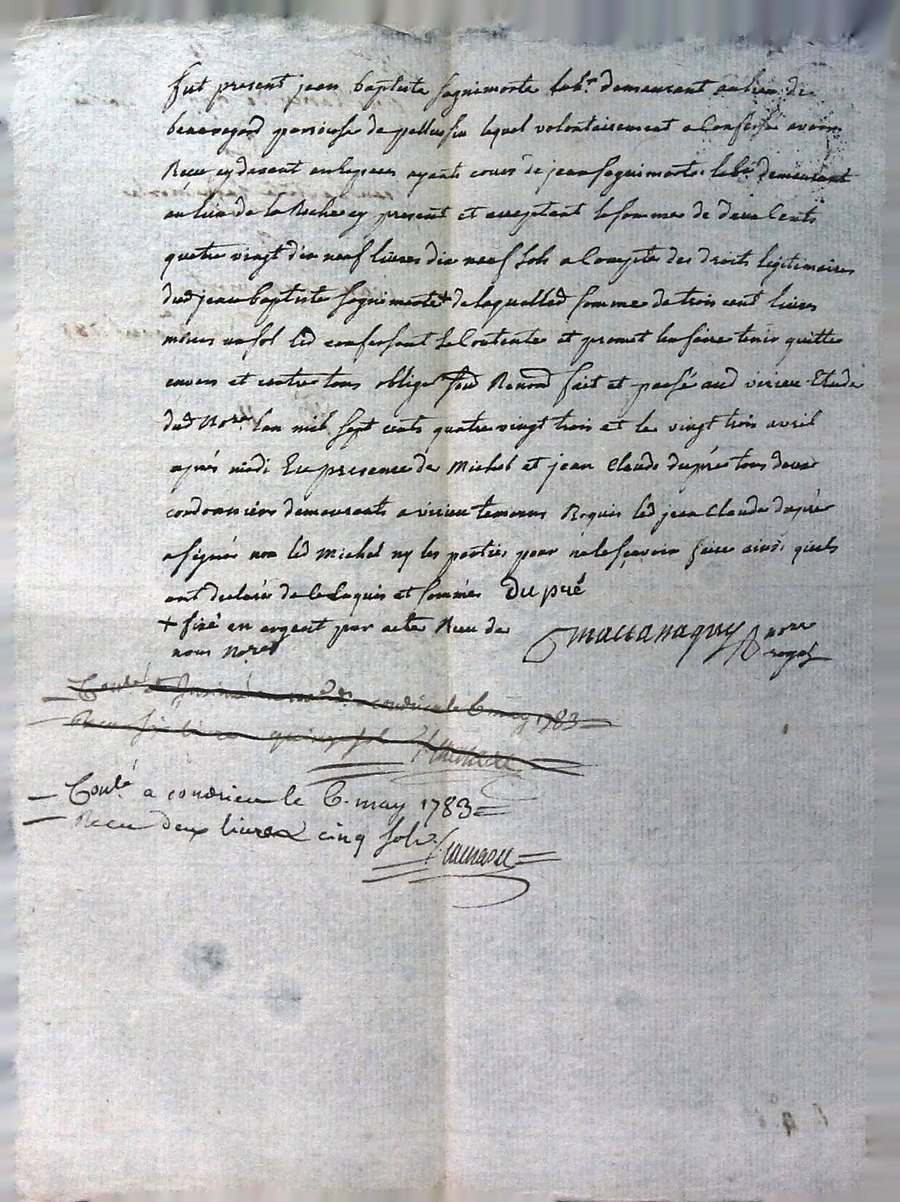 fut present jean baptiste Seguimorte lab.r demeurant au lieu de
beauregard paroisse de pellussin lequel volontairement a Confessé avoir
Receu cy devant en especes ayants cours de jean Seguimorte lab.r demeurant
au lieu de la Roche cy present et acceptant la somme de deux Cents
quatre vingt dix neuf livres dix neuf sols a Compte des droits legitimaires
dud jean baptiste Seguimorte + de laquelled somme de trois cent livres
moins un sol led confessant Se Contente et promet len faire tenir quitte
envers et contre tous oblige Soud Renond fait et passé aud virieu Etude
dud No.re lan mil sept cents quatre vingt trois et le vingt trois avril
après midi En presence de Michel et jean Claude dupré tous deux
cordonniers demeurants a virieu temoins Requis led jean Claude dupré
a signé non led Michel ny les parties pour ne le sçavoir faire ainsi quils
ont declaré de ce Enquis et Sommés Du pré
+ fixé en argent par acte Receu de
nous No.re
nore
royal
Conlé a condrieu le 6 may 1783
Receu
Conlé a condrieu le 6 may 1783
Receu deux livres cinq sols